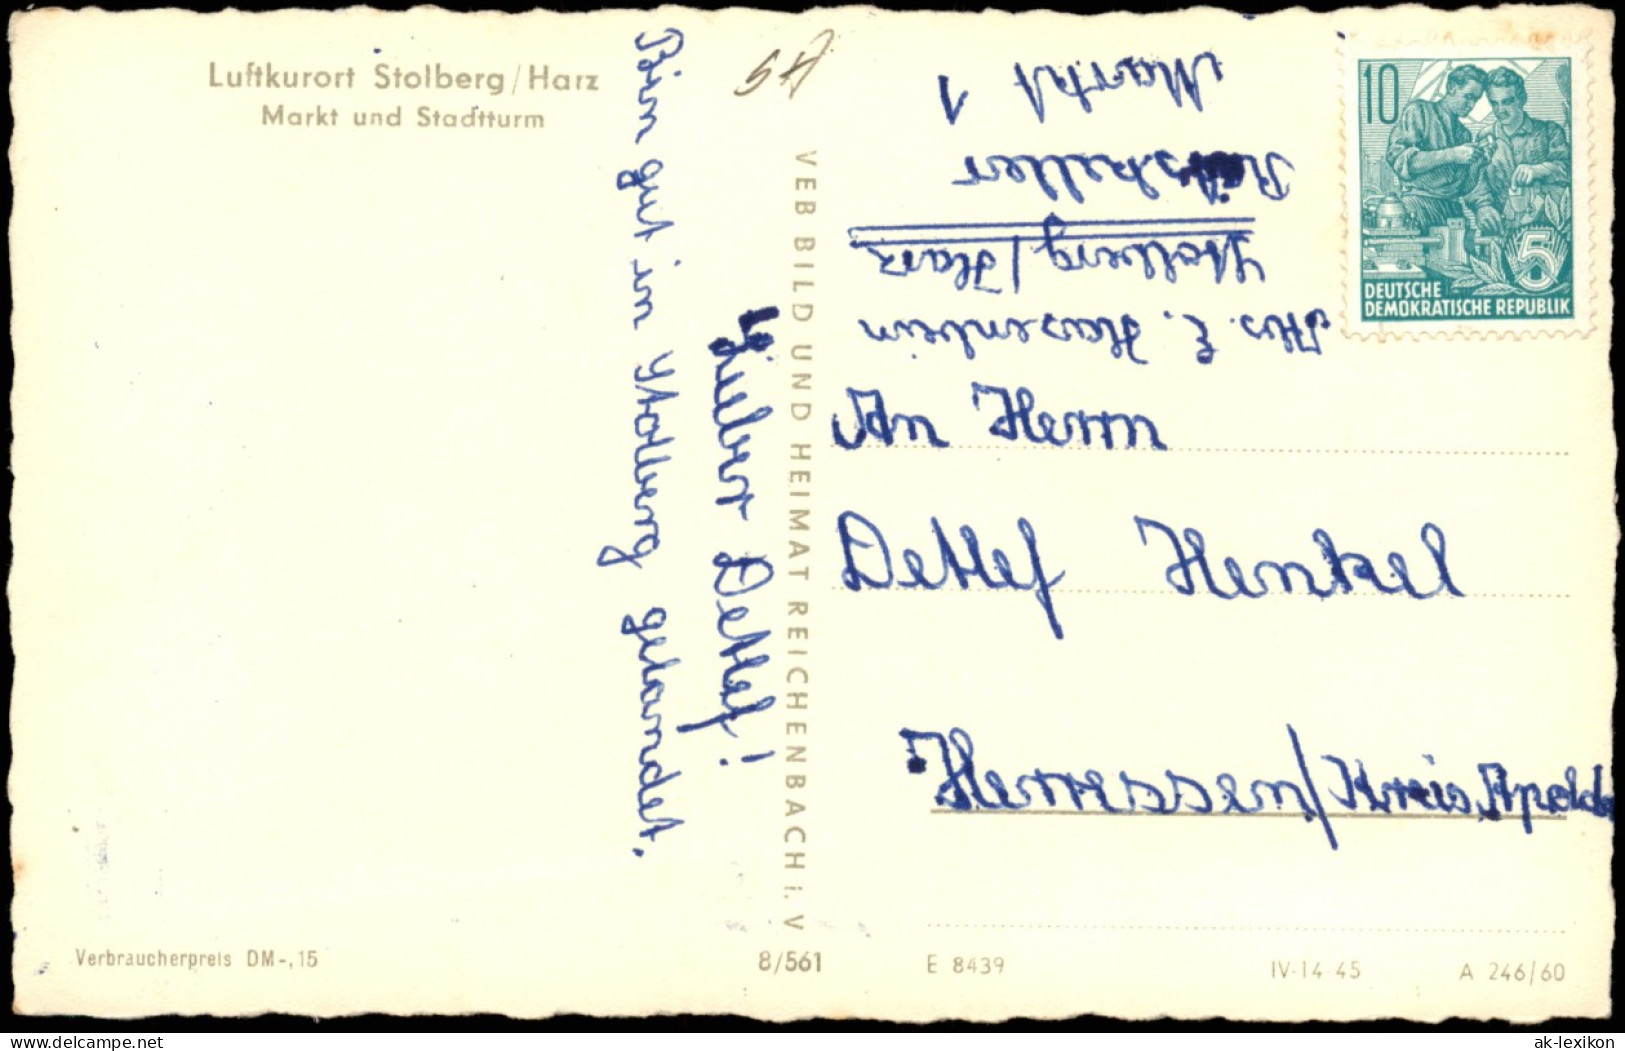 Luftkurort Stolberg/Harz
Markt und Stadtturm
Lieber Detlef!
Bin gut in Stolberg gelandet.
VEB BILD UND HEIMAT REICHENBACH i. V
Abs. E. Hasenbein
Stolberg/Harz
Ratskeller
Markt 1
10
5
DEUTSCHE
DEMOKRATISCHE REPUBLIK
An Herrn
Detlef Henkel
Hermessen/Kreis Apolda
Verbraucherpreis DM-,15
8/561
E 8439
IV-14-45
A 246/60
oldthing
ak-lexikon